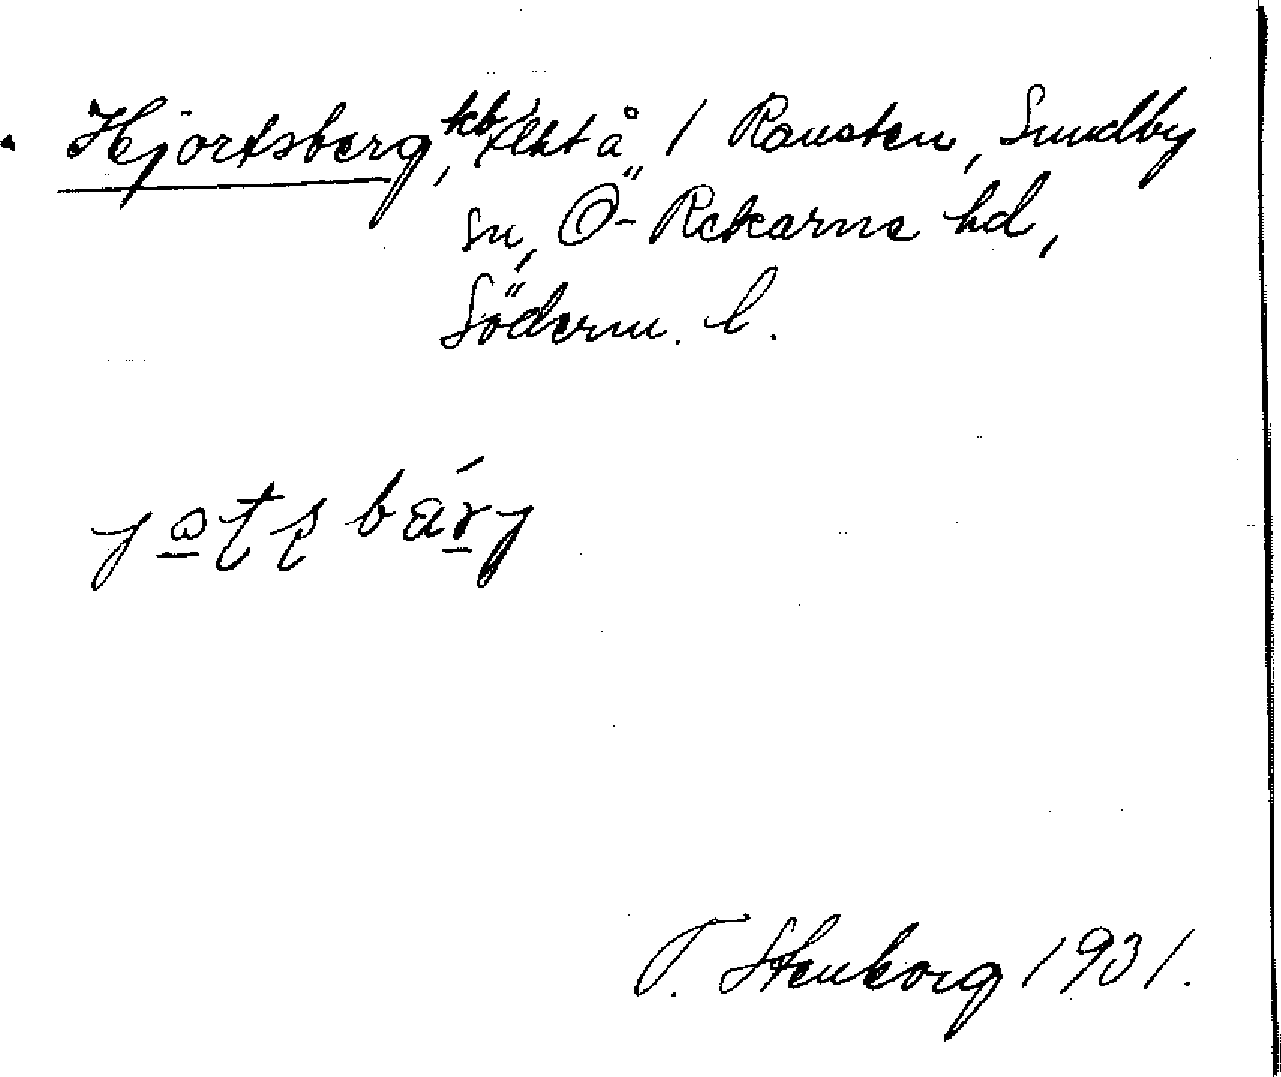 Hjortsberg, tkt å 1 Ransten, Sundby
sn, Ö-Rekarne hd,
Söderm. l.
T. Stenborg 1931.